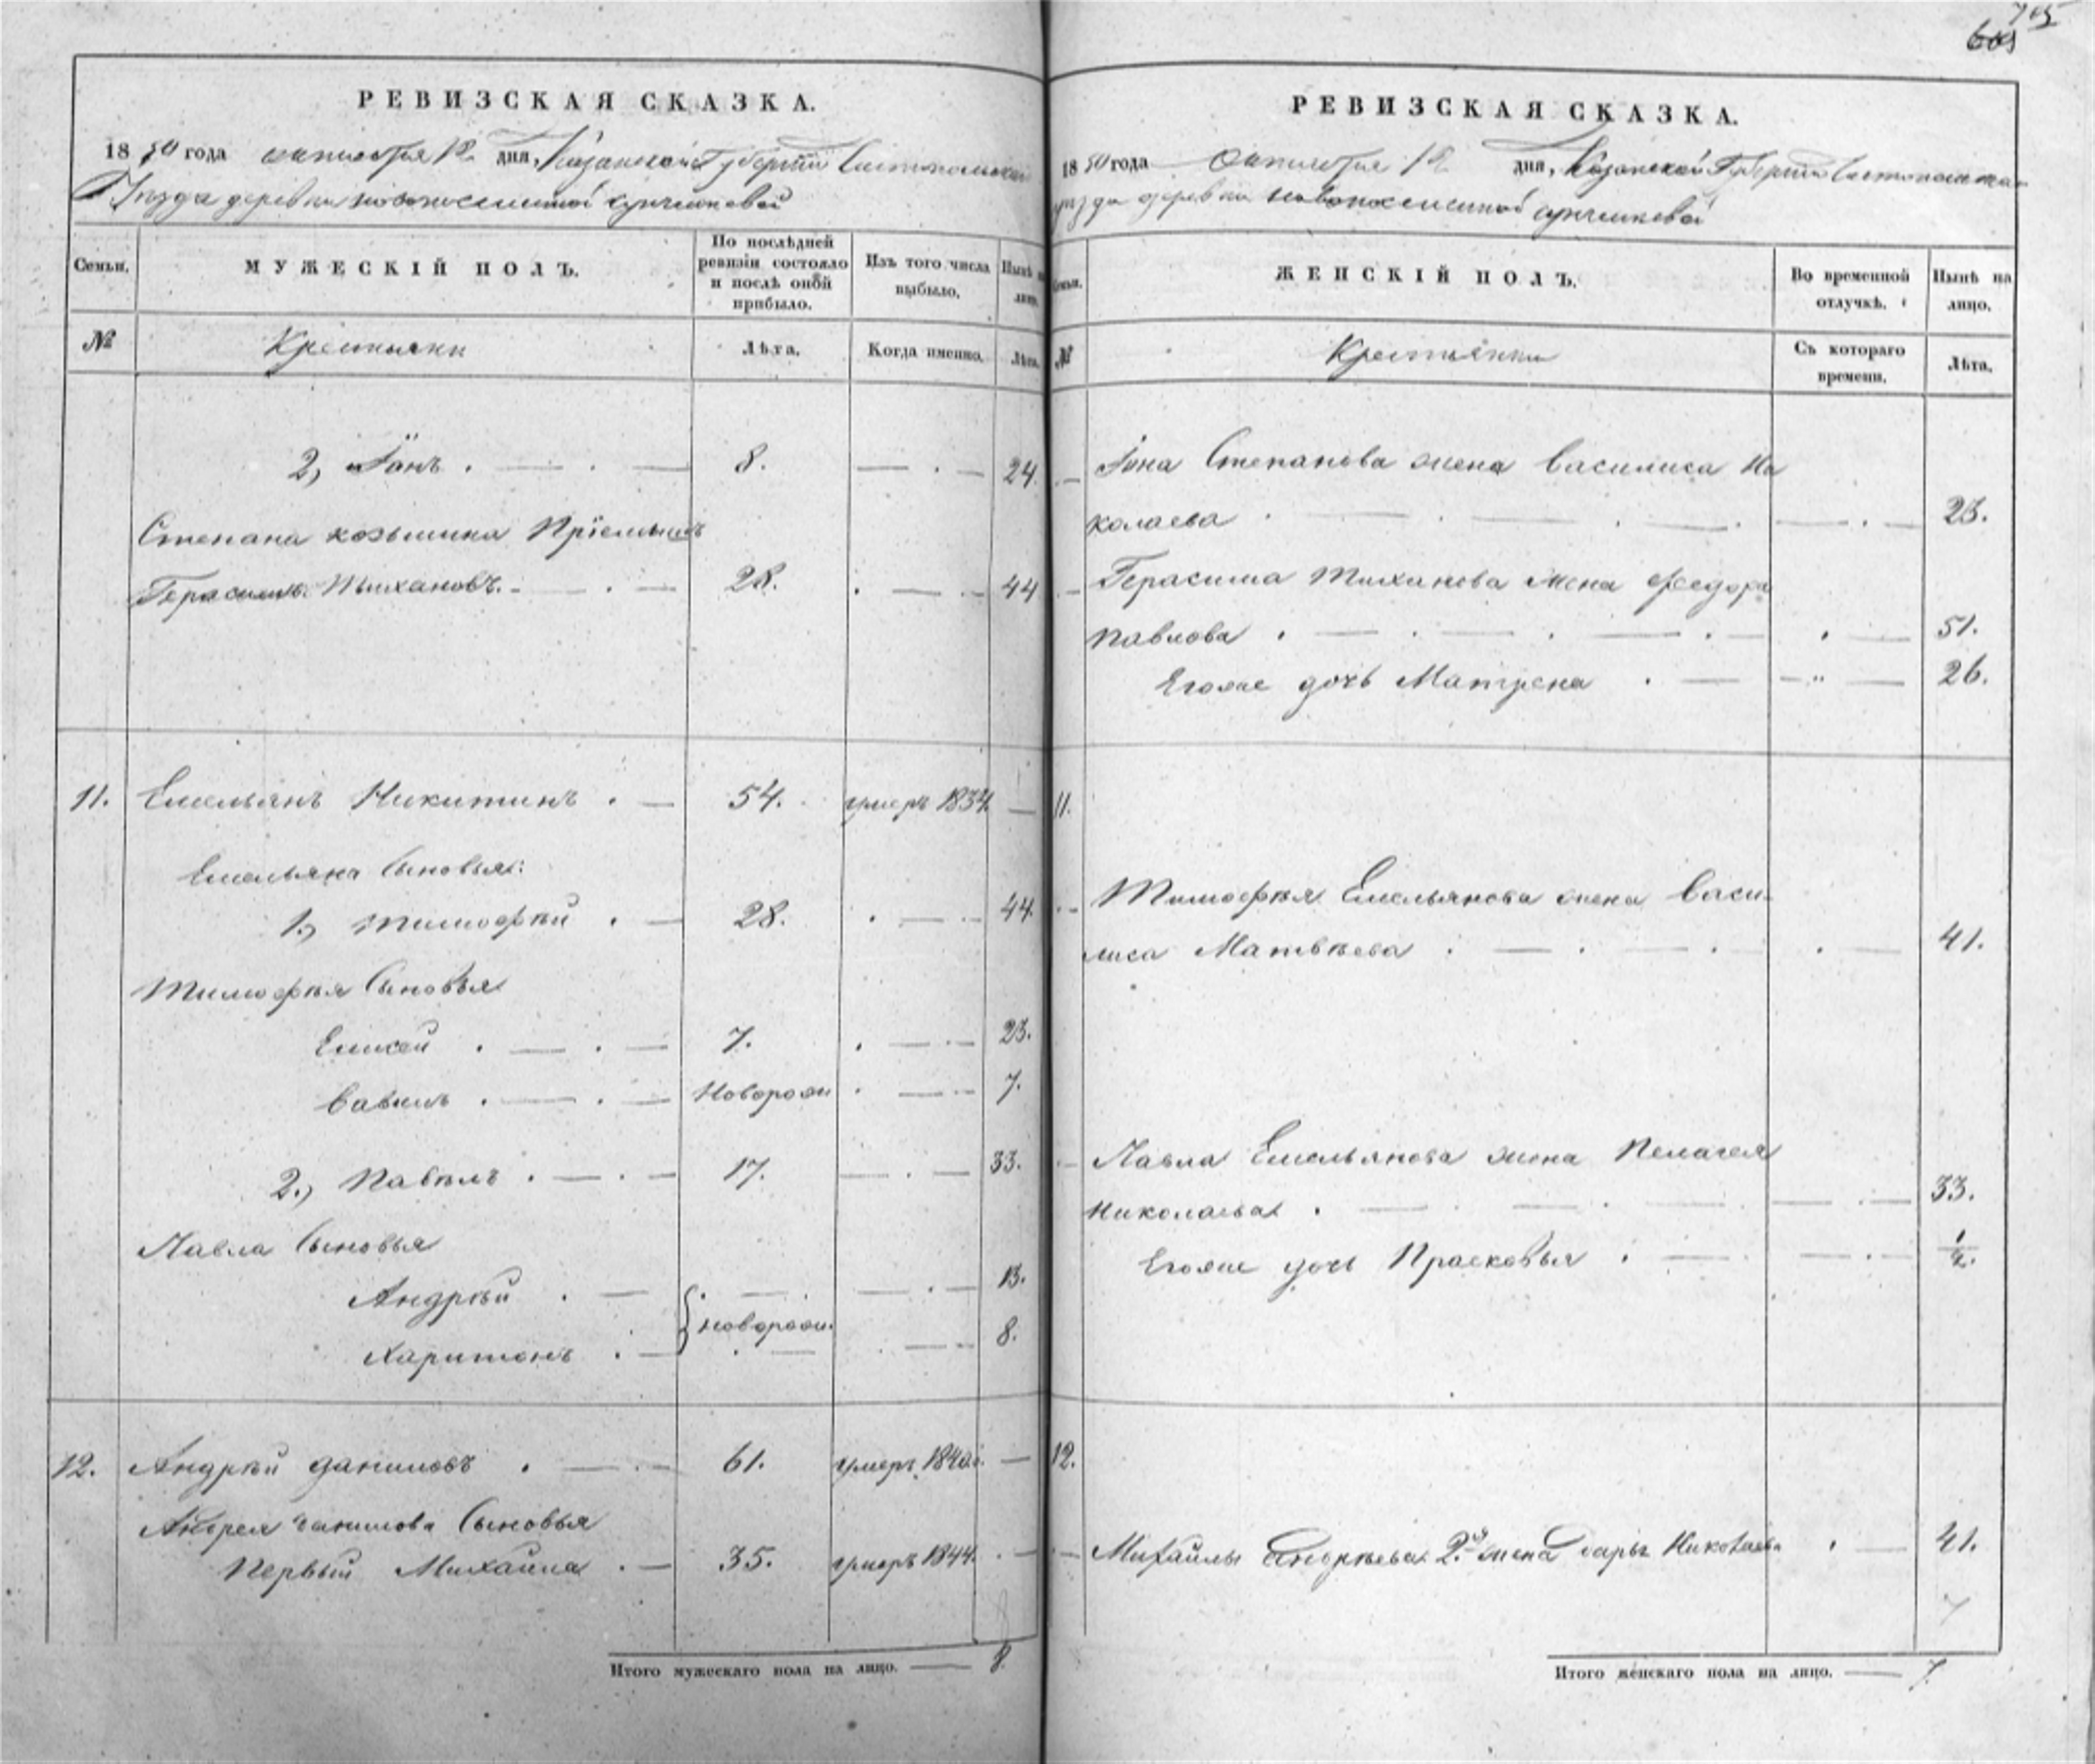 705
РЕВИЗСКАЯ СКАЗКА.
1850 года октября 12 дня, Казанской Губернии Чистопольскаго
Уѣзда деревни новопоселенной
Семьи. МУЖЕСКІЙ ПОЛЪ. По послѣдней ревизіи состояло и послѣ оной прибыло. Изъ того числа выбыло. Нынѣ на лицо.
№ Крестьяне Лѣта. Когда именно. Лѣта.
2, Іонъ 8. 24.
Степана козьмина Пріемышъ
Герасимъ Тихановъ. 28. 44
11. Емельянъ Никитинъ 54. умеръ 1834. —
Емельяна Сыновья:
1., Тимофѣй 28. 44.
Тимофѣя Сыновья
Елисей 7. 23.
ВавилъНоворож 7.
2., Павѣлъ 17. 33.
Павла Сыновья
Андрѣй 13.
новорож.
Харитонъ 8.
12. Андрѣй даниловъ 61. умеръ 1840. —
Андрея данилова Сыновья
Первый Михайла 35. умеръ 1844. —
Итого мужескаго пола на лицо. — 8.
РЕВИЗСКАЯ СКАЗКА.
1850 года Октября 12 дня, Казанской Губерніи Чистопольскаго
уѣзда деревни новопоселенной
Семьи. ЖЕНСКІЙ ПОЛЪ. Во временной отлучкѣ. Нынѣ на лицо.
№ Крестьянки Съ котораго времени. Лѣта.
Іона Степанова жена Василиса Ни
колаева 23.
Герасима Тиханова жена Федора
Павлова 51.
Егоже дочь Матрена 26.
11.
Тимофѣя Емельянова жена Васи-
лиса Матвѣева 41.
Павла Емельянова жена Пелагея
Николаева 33.
Егоже дочь Прасковья 1/2.
12.
Михайлы Андрѣева 2я жена дарья Николаева 41.
7
Итого женскаго пола на лицо. — 7.